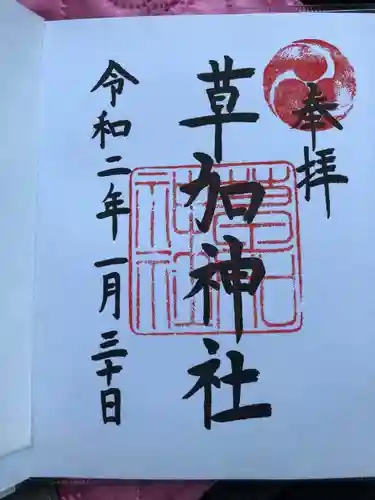 奉拝
草加神社
令和二年一月三十日
草加神社